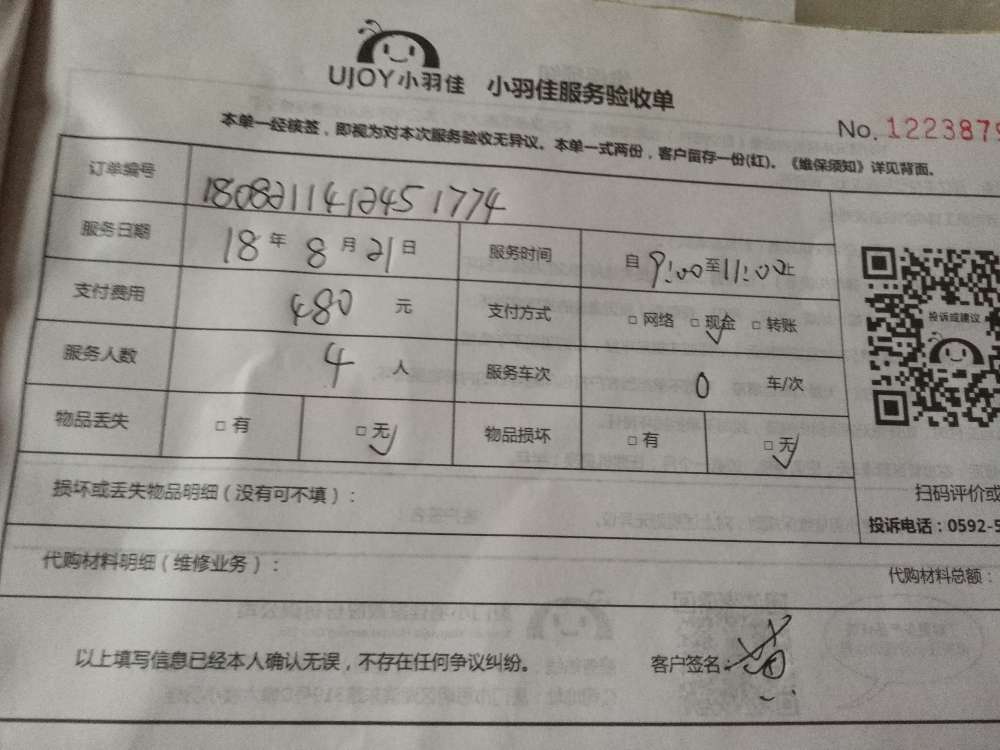 UJOY小羽佳 小羽佳服务验收单
No. 122387
本单一经核签，即视为对本次服务验收无异议。本单一式两份，客户留存一份(红)。《维保须知》详见背面。
订单编号 180821141245 1774
服务日期 18 年 8 月 21 日 服务时间 自 9:00 至 11:00 止
支付费用 480 元 支付方式 □ 网络 □ 现金 □ 转账
服务人数 4 人 服务车次 0 车/次
物品丢失 □ 有 □ 无 物品损坏 □ 有 □ 无
投诉或建议
扫码评价或
投诉电话：0592-5
损坏或丢失物品明细（没有可不填）：
代购材料明细（维修业务）： 代购材料总额：
以上填写信息已经本人确认无误，不存在任何争议纠纷。 客户签名：